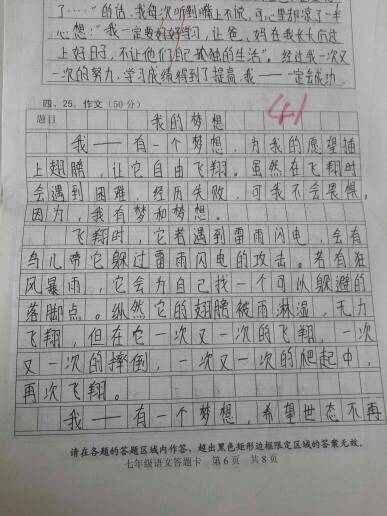 了……"的话,我每次听到嘴上不说,可心里却滚了一
心想:"我一定要好好学习,让爸、妈在我长大后过
上好日子,不让他们自己孤独的生活"。经过我一次又
一次的努力,学习成绩得到了提高,我——一定会成功
四、25. 作文(50分)
41
题目 我的梦想
我——有一个梦想,为我的愿望插
上翅膀,让它自由飞翔。虽然在飞翔时
会遇到困难,经历失败,可我不会畏惧。
因为,我有梦和梦想。
飞翔时,它若遇到雷雨闪电,会有
鸟儿带它躲过雷雨闪电的攻击。若有狂
风暴雨,它会为自己找一个可以躲避的
落脚点。纵然它的翅膀被雨淋湿,无力
飞翔,但在它一次又一次的飞翔,一次
又一次的摔倒,一次又一次的爬起中,
再次飞翔。
我——有一个梦想,希望世态不再
请在各题的答题区域内作答,超出黑色矩形边框限定区域的答案无效。
七年级语文答题卡 第6页 共8页